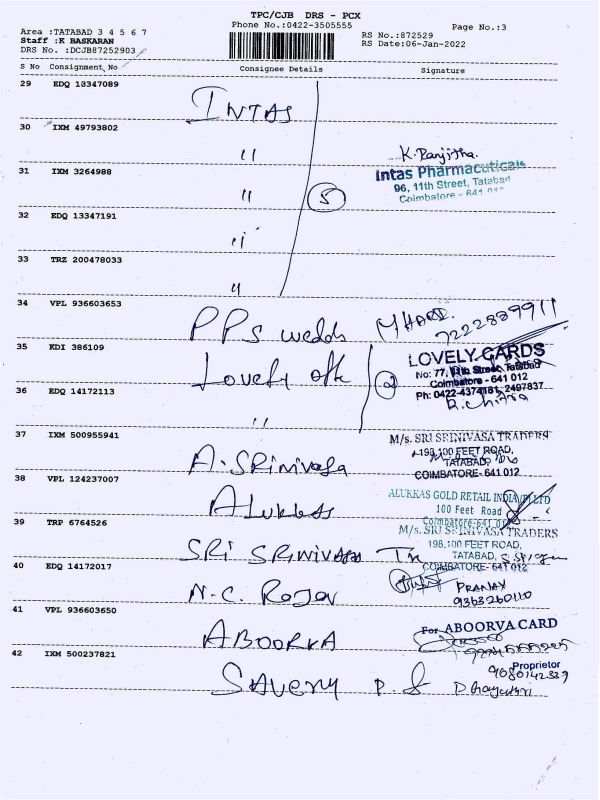 TPC/CJB DRS - PCX
Phone No.:0422-3505555
Page No.:3
Area :TATABAD 3 4 5 6 7
Staff :K BASKARAN
DRS No. :DCJB87252903
RS No.:872529
RS Date:06-Jan-2022
S No Consignment No Consignee Details Signature
29 EDQ 13347089
INTAS
30 IXM 49793802
"
K. Ranjitha.
Intas Pharmaceuticals
96, 11th Street, Tatabad
Coimbatore - 641 012
31 IXM 3264988
"
5
32 EDQ 13347191
"
33 TRZ 200478033
"
34 VPL 936603653
PPS wedds
7222889911
35 KDI 386109
Lovely offc
2
LOVELY CARDS
No: 77, 11th Street, Tatabad
Coimbatore - 641 012
Ph: 0422-4374181, 2497837
R. Chitra
36 EDQ 14172113
"
37 IXM 500955941
A. SRinivasa
M/s. SRI SRINIVASA TRADERS
198, 100 FEET ROAD,
TATABAD,
COIMBATORE- 641 012
38 VPL 124237007
ALUKKAS
ALUKKAS GOLD RETAIL INDIA P LTD
100 Feet Road
Coimbatore-641 012
39 TRP 6764526
SRI SRINIVASA
M/s. SRI SRINIVASA TRADERS
198, 100 FEET ROAD,
TATABAD,
COIMBATORE- 641 012
40 EDQ 14172017
N. C. Rajav
PRANAV
9363260110
41 VPL 936603650
ABOORVA
For ABOORVA CARD
Proprietor
42 IXM 500237821
SAVERY P. S
9080142339